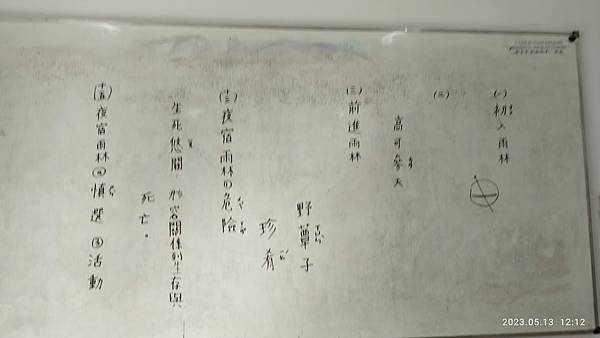 (一)初入雨林
(二)
高可參天
(三)前進雨林
野蕈子
珍肴
(十三)夜宿雨林①危險
生死攸關:形容關係到生存與
死亡。
(十五)夜宿雨林②慎選 ③活動
2023.05.13 12:12